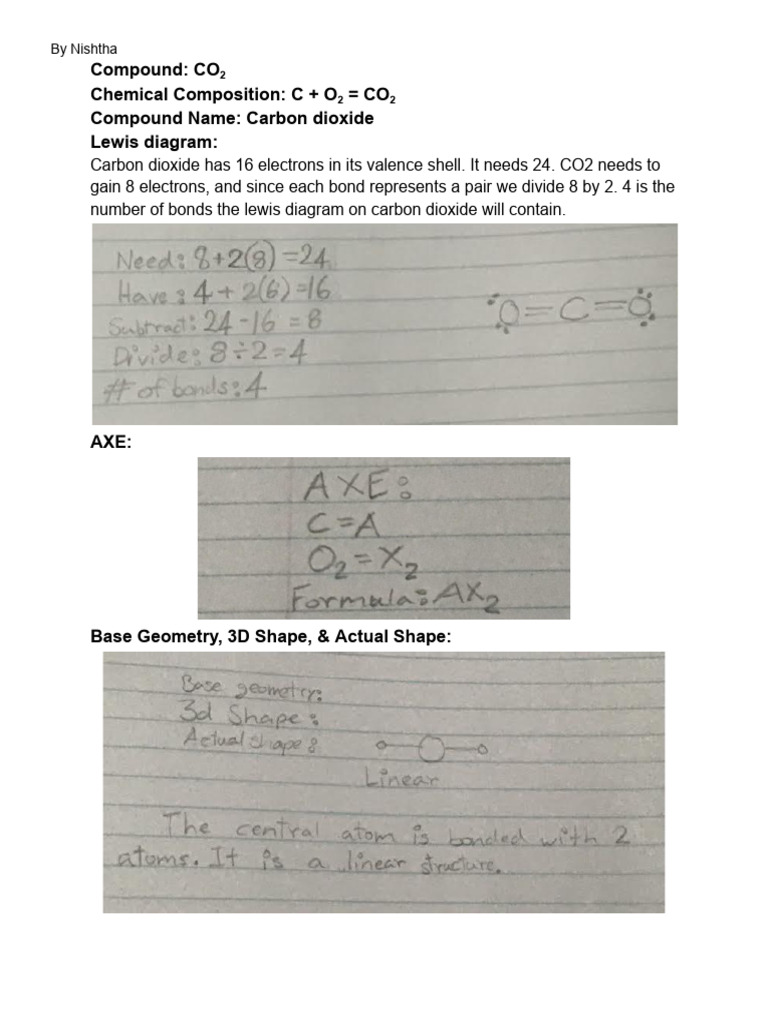 By Nishtha
Compound: CO₂
Chemical Composition: C + O₂ = CO₂
Compound Name: Carbon dioxide
Lewis diagram:
Carbon dioxide has 16 electrons in its valence shell. It needs 24. CO2 needs to
gain 8 electrons, and since each bond represents a pair we divide 8 by 2. 4 is the
number of bonds the lewis diagram on carbon dioxide will contain.
Need: 8+2(8)=24
Have: 4+2(6)=16
Subtract: 24-16=8
Divide: 8÷2=4
# of bonds: 4
O=C=O
AXE:
AXE:
C=A
O₂=X₂
Formula: AX₂
Base Geometry, 3D Shape, & Actual Shape:
Base geometry:
3d Shape:
Actual shape:
Linear
The central atom is bonded with 2
atoms. It is a linear structure.